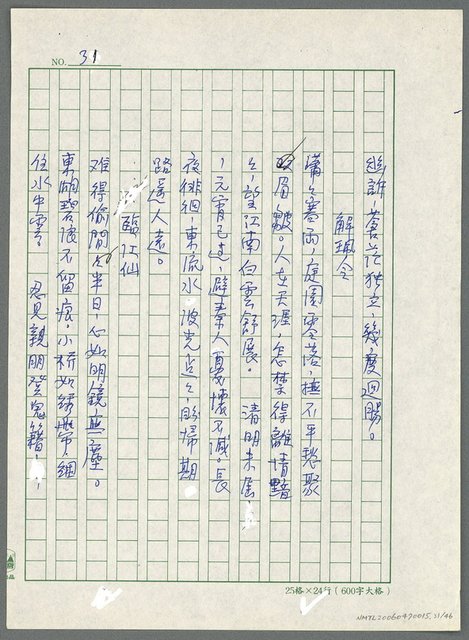 NO. 31
愁訴，蒼茫獨立，幾度迴腸。
解珮令
瀟瀟寒雨，庭園零落，撫不平愁聚
眉皺。人在天涯，怎禁得離情黯
，望江南白雲舒展。 清明未屆，
元宵已過，避秦人憂懷不減。長
夜徘徊，東流水。波光點點，盼歸期
路遙人遠。
臨江仙
難得偷閒半日，心如明鏡無塵。
東湖碧浪不留痕。小橋如綉帶，細
住水中雲 忍見親朋登鬼籍，
25格×24行（600字大格）
NMTL20060470015.31/46